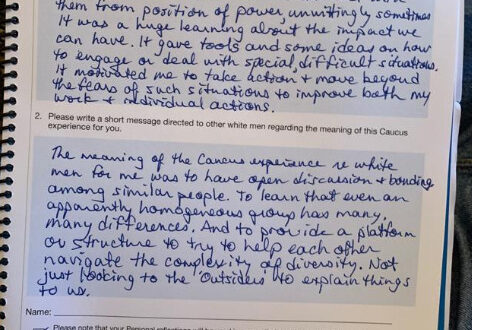 them from position of power, unwittingly sometimes
It was a huge learning about the impact we
can have. It gave tools and some ideas on how
to engage or deal with special, difficult situations.
It motivated me to take action + move beyond
the fears of such situations to improve both my
work + individual actions.
2. Please write a short message directed to other white men regarding the meaning of this Caucus
experience for you.
The meaning of the Caucus experience re white
men for me was to have open discussion + bonding
among similar people. To learn that even an
apparently homogeneous group has many,
many differences. And to provide a platform
or structure to try to help each other
navigate the complexity of diversity. Not
just looking to the "Outsiders" to explain things
to us.
Name:
Please note that your Personal reflections will be